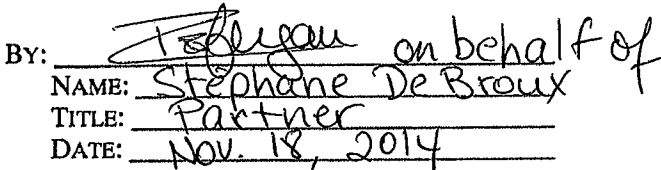 BY: on behalf of
NAME: Stéphane De Broux
TITLE: Partner
DATE: Nov. 18, 2014